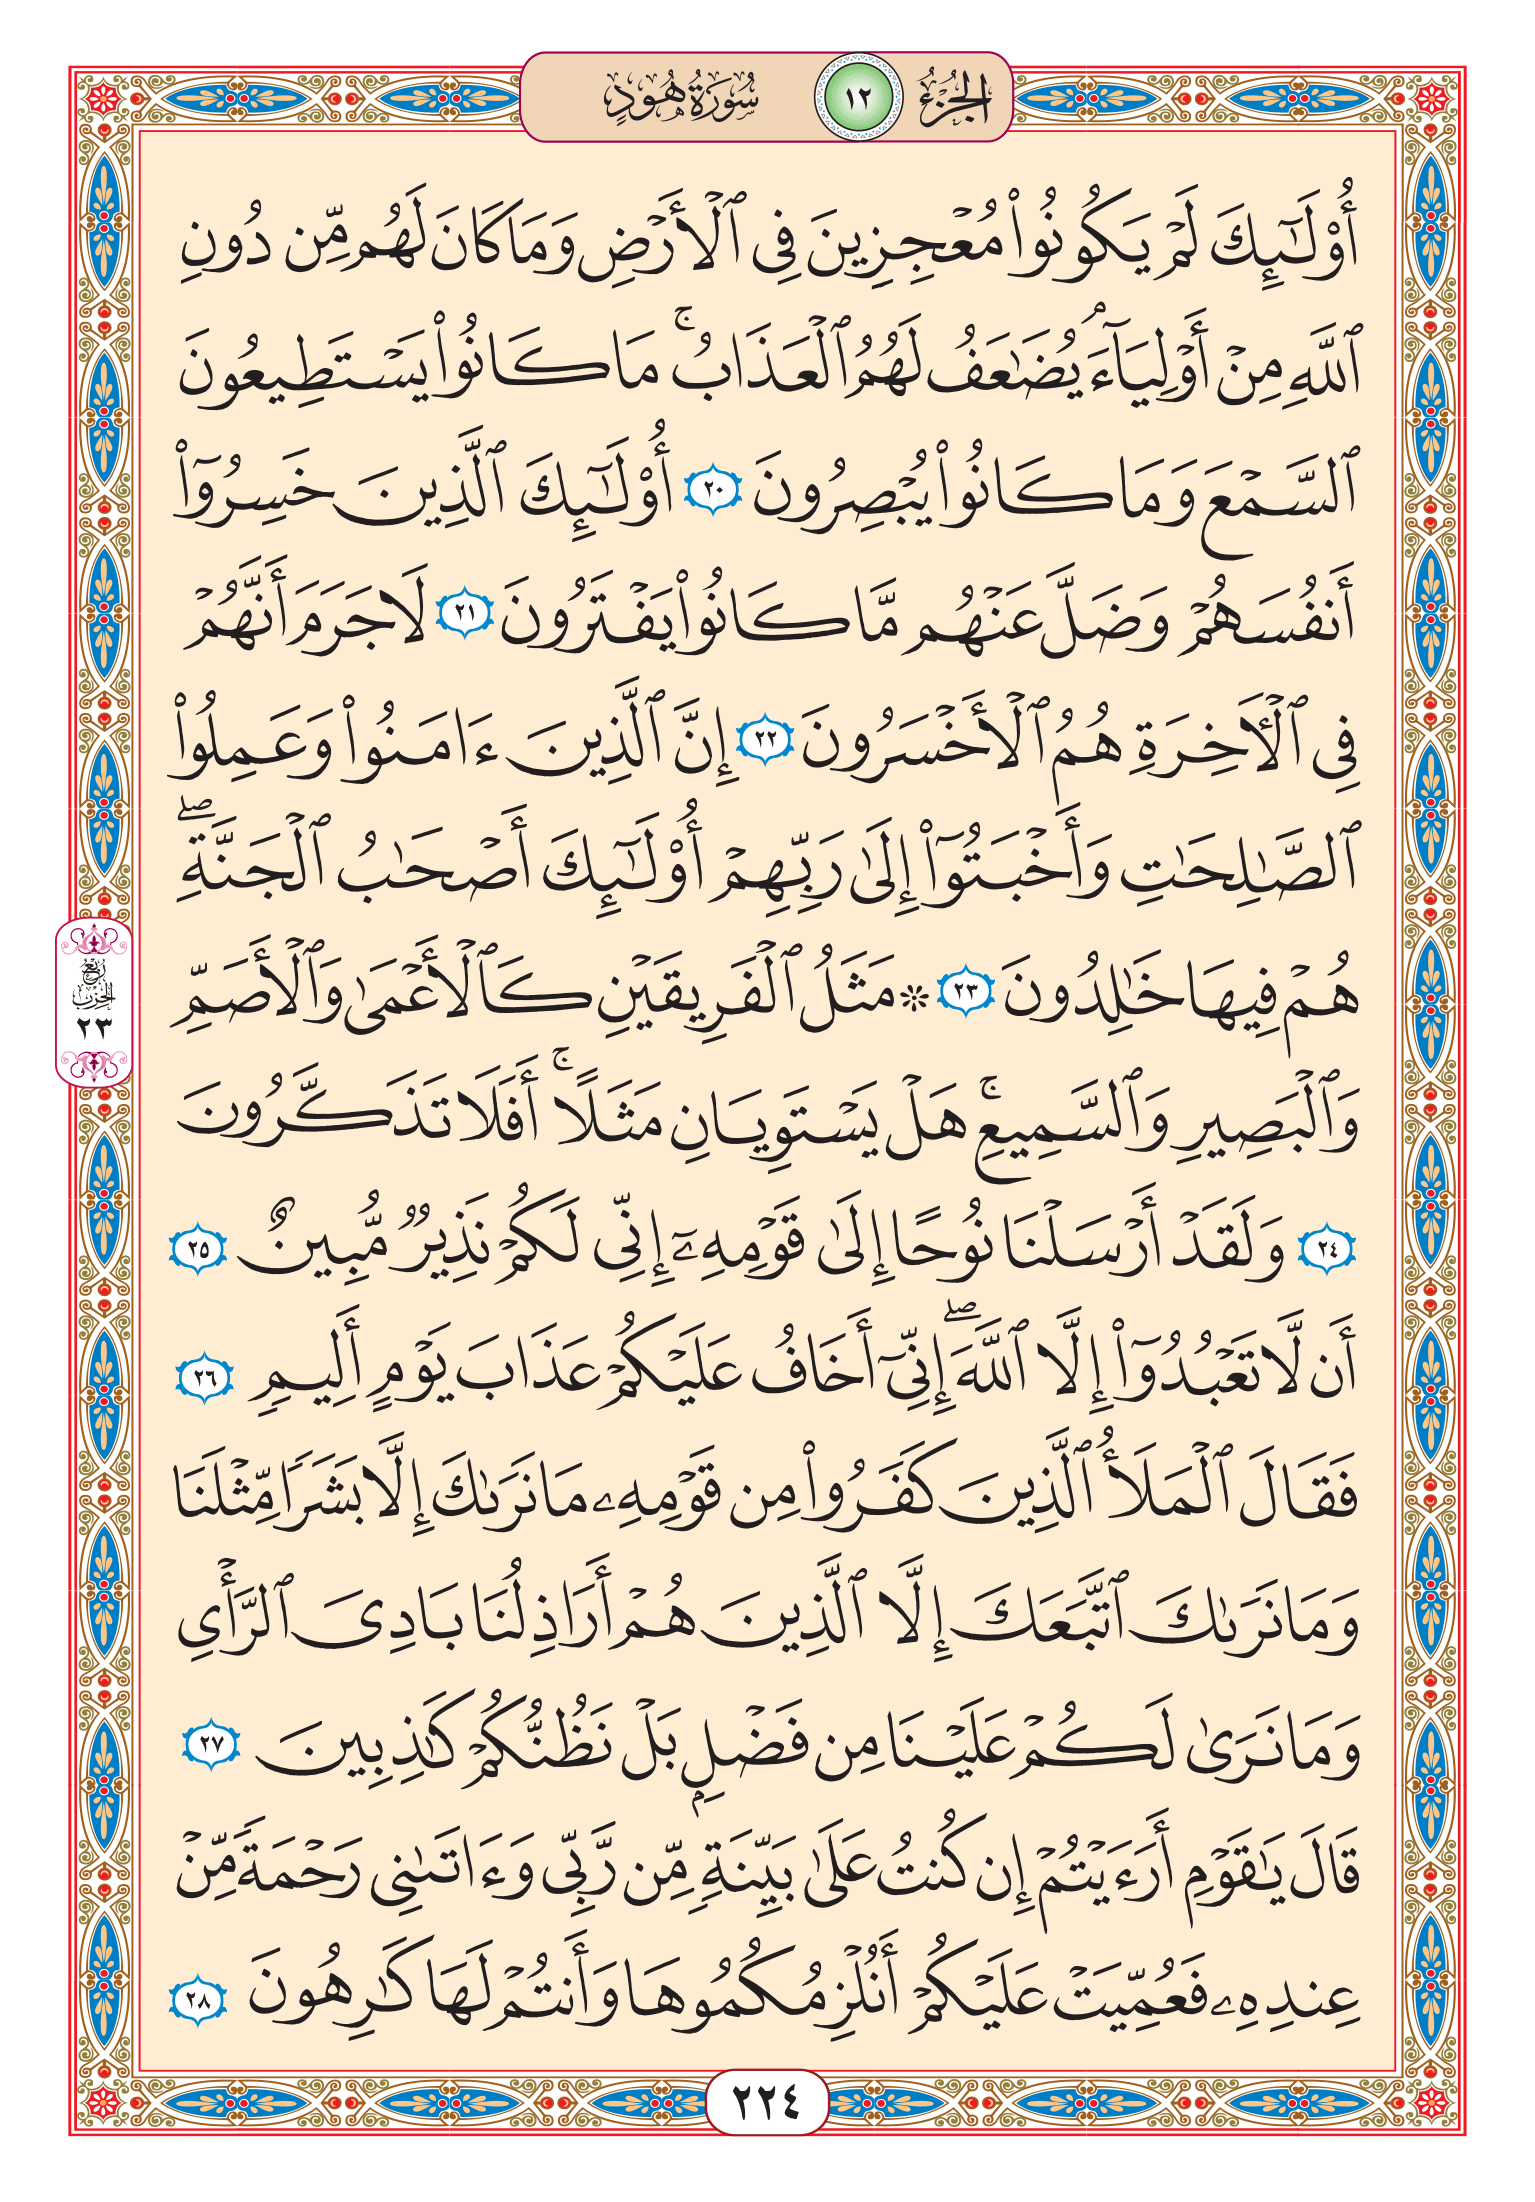 الجزء ١٢ سورة هود
أُوْلَـٰٓئِكَ لَمْ يَكُونُوا۟ مُعْجِزِينَ فِى ٱلْأَرْضِ وَمَا كَانَ لَهُم مِّن دُونِ
ٱللَّهِ مِنْ أَوْلِيَآءَ ۘ يُضَـٰعَفُ لَهُمُ ٱلْعَذَابُ ۚ مَا كَانُوا۟ يَسْتَطِيعُونَ
ٱلسَّمْعَ وَمَا كَانُوا۟ يُبْصِرُونَ ٢٠ أُوْلَـٰٓئِكَ ٱلَّذِينَ خَسِرُوٓا۟
أَنفُسَهُمْ وَضَلَّ عَنْهُم مَّا كَانُوا۟ يَفْتَرُونَ ٢١ لَا جَرَمَ أَنَّهُمْ
فِى ٱلْـَٔاخِرَةِ هُمُ ٱلْأَخْسَرُونَ ٢٢ إِنَّ ٱلَّذِينَ ءَامَنُوا۟ وَعَمِلُوا۟
ٱلصَّـٰلِحَـٰتِ وَأَخْبَتُوٓا۟ إِلَىٰ رَبِّهِمْ أُوْلَـٰٓئِكَ أَصْحَـٰبُ ٱلْجَنَّةِ ۖ
هُمْ فِيهَا خَـٰلِدُونَ ٢٣ ۞ مَثَلُ ٱلْفَرِيقَيْنِ كَٱلْأَعْمَىٰ وَٱلْأَصَمِّ
وَٱلْبَصِيرِ وَٱلسَّمِيعِ ۚ هَلْ يَسْتَوِيَانِ مَثَلًا ۚ أَفَلَا تَذَكَّرُونَ
٢٤ وَلَقَدْ أَرْسَلْنَا نُوحًا إِلَىٰ قَوْمِهِۦٓ إِنِّى لَكُمْ نَذِيرٌ مُّبِينٌ ٢٥
أَن لَّا تَعْبُدُوٓا۟ إِلَّا ٱللَّهَ ۖ إِنِّىٓ أَخَافُ عَلَيْكُمْ عَذَابَ يَوْمٍ أَلِيمٍ ٢٦
فَقَالَ ٱلْمَلَأُ ٱلَّذِينَ كَفَرُوا۟ مِن قَوْمِهِۦ مَا نَرَىٰكَ إِلَّا بَشَرًا مِّثْلَنَا
وَمَا نَرَىٰكَ ٱتَّبَعَكَ إِلَّا ٱلَّذِينَ هُمْ أَرَاذِلُنَا بَادِىَ ٱلرَّأْىِ
وَمَا نَرَىٰ لَكُمْ عَلَيْنَا مِن فَضْلٍۭ بَلْ نَظُنُّكُمْ كَـٰذِبِينَ ٢٧
قَالَ يَـٰقَوْمِ أَرَءَيْتُمْ إِن كُنتُ عَلَىٰ بَيِّنَةٍ مِّن رَّبِّى وَءَاتَىٰنِى رَحْمَةً مِّنْ
عِندِهِۦ فَعُمِّيَتْ عَلَيْكُمْ أَنُلْزِمُكُمُوهَا وَأَنتُمْ لَهَا كَـٰرِهُونَ ٢٨
ربع
الحزب
٢٣
٢٢٤